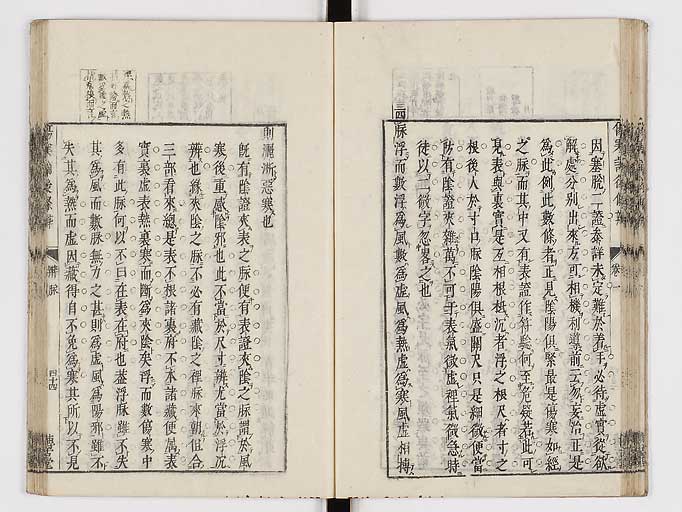 因塞脫二證叅詳未定難於着手必待虛實從欲
解處分別出來方可相機利導前云勿妄治正是
為此例此數條者正見陰陽俱緊最是傷寒如經
之脈而其中又有表證作祟矣何至危殆若此可
見表與裏實是互相根柢沉者浮之根尺者寸之
根後人於寸口脈陰陽俱盛關尺只是細微便當
防有陰證夾雜萬不可于表氣微虛裡氣微急時
徒以二微字忽畧之也
三四脈浮而數浮為風數為虛風為熱虛為寒風虛相搏
則灑淅惡寒也
旣有陰證夾表之脈便有表證夾陰之脈謂於風
寒後重感陰邪也此不當於尺寸辨尤當於浮沉
辨也緣夾陰之脈不必有藏陰之裡脈來朝但合
三部看來總是表不根諸裏府不本諸藏便屬表
實裏虛表熱裏寒而斷為夾陰矣浮而數傷寒中
多有此脈何以不曰在表在府也葢浮脈雖不失
其為風而數脈無力之甚則為虛風為陽邪雖不
失其為熱而虛因藏得自不免為寒其所以不見
辨脈
四十四